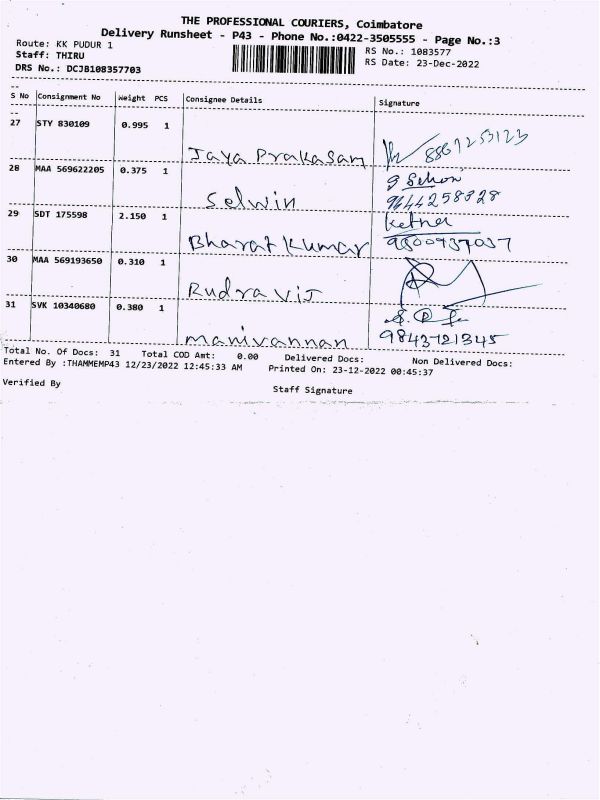 THE PROFESSIONAL COURIERS, Coimbatore
Delivery Runsheet - P43 - Phone No.:0422-3505555 - Page No.:3
Route: KK PUDUR 1
RS No.: 1083577
Staff: THIRU
RS Date: 23-Dec-2022
DRS No.: DCJB108357703
S No Consignment No Weight PCS Consignee Details Signature
27 STY 830109 0.995 1
Jaya Prakasam 8867253123
28 MAA 569622205 0.375 1
Selwin 9644258828
29 SDT 175598 2.150 1
Bharat Kumar
30 MAA 569193650 0.310 1
Rudra Vij
31 SVK 10340680 0.380 1
Manivannan 9843721345
Total No. Of Docs: 31 Total COD Amt: 0.00 Delivered Docs: Non Delivered Docs:
Entered By :THAMMEMP43 12/23/2022 12:45:33 AM Printed On: 23-12-2022 00:45:37
Verified By Staff Signature